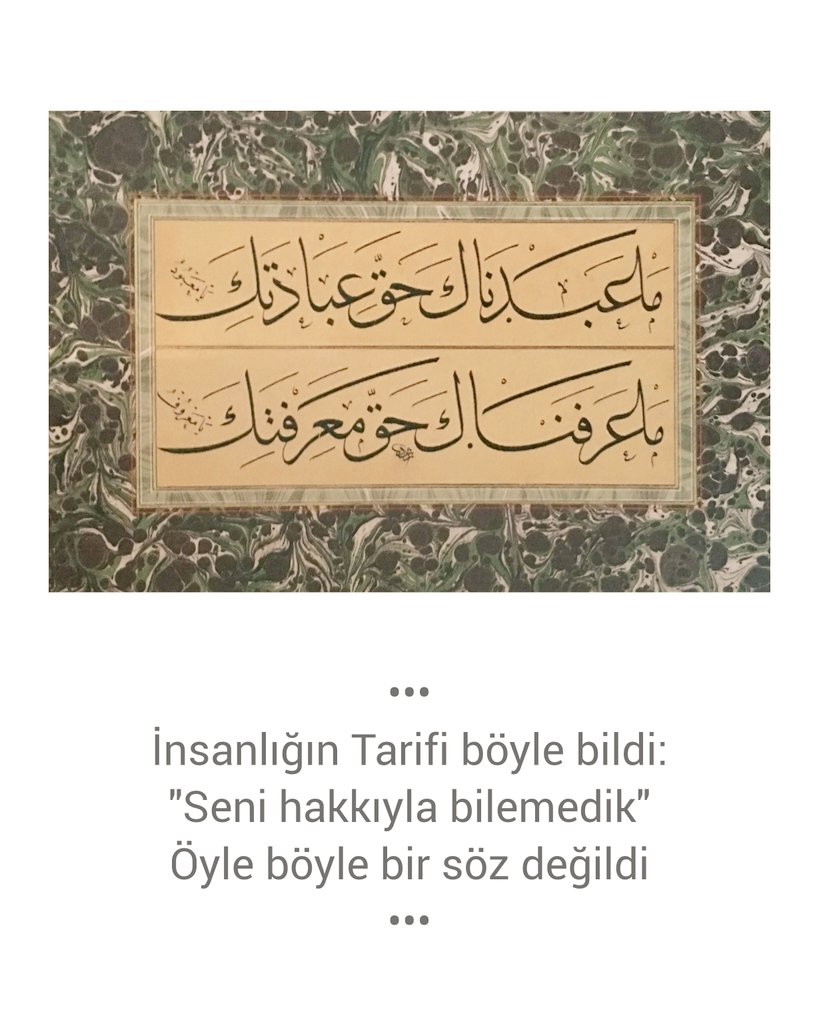 ما عبدناك حَقَّ عِبَادَتِكَ يا معبود
ما عرفناك حَقَّ مَعرِفَتِكَ يا معروف
•••
İnsanlığın Tarifi böyle bildi:
"Seni hakkıyla bilemedik"
Öyle böyle bir söz değildi
•••